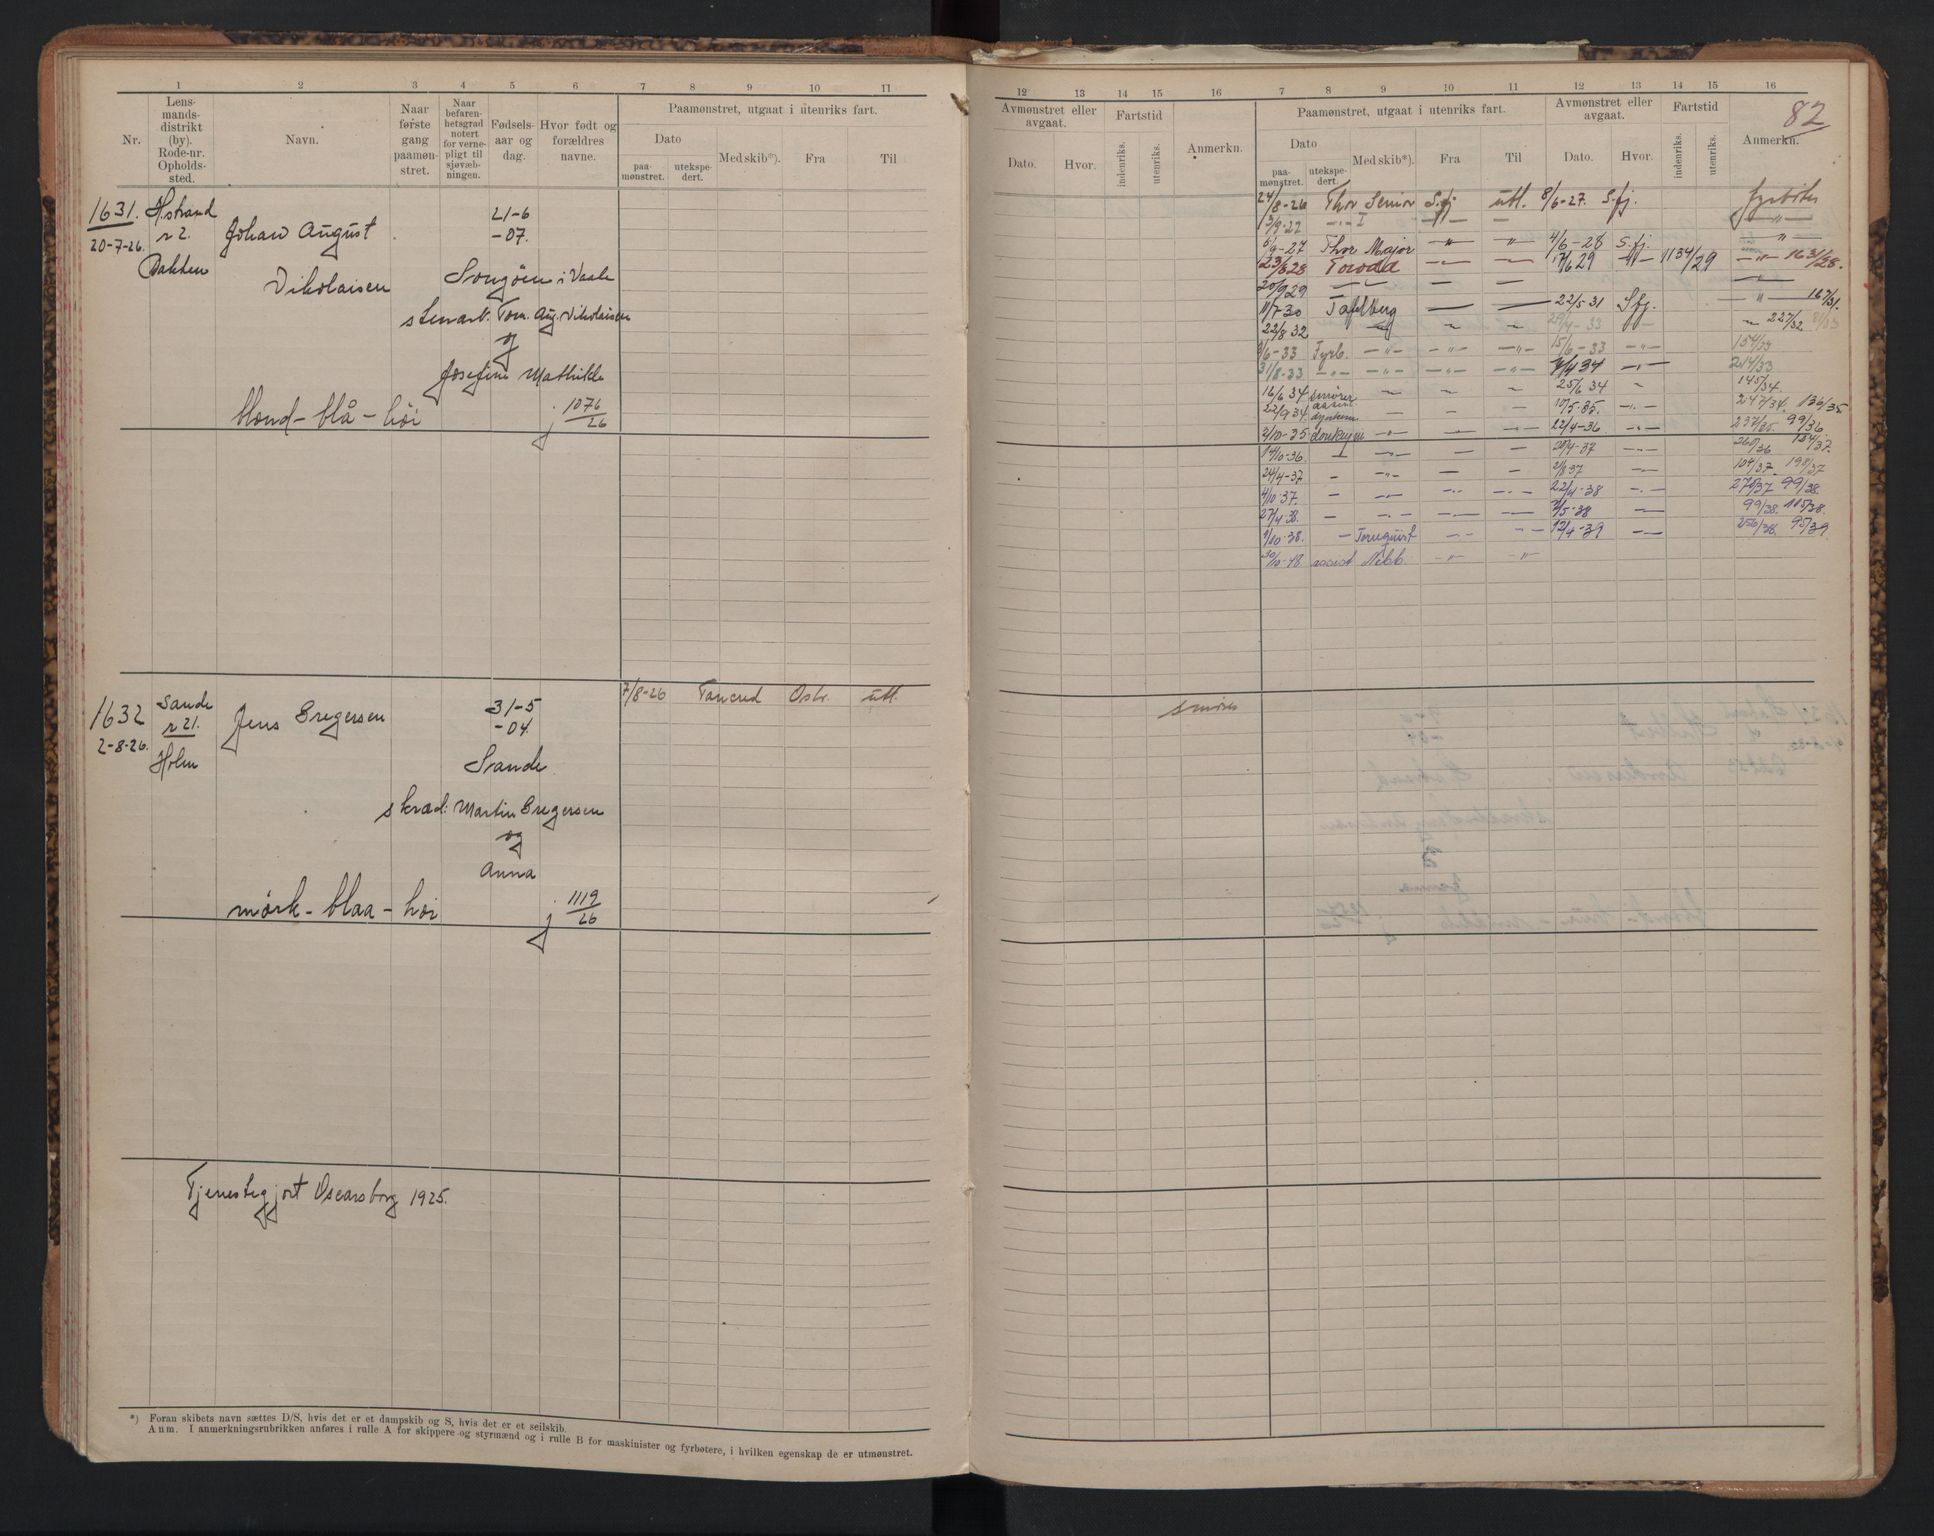 1 2 3 4 5 6 7 8 9 10 11
Nr.
Lens-
mands-
distrikt
(by).
Rode-nr.
Opholds-
sted.
Navn.
Naar
første
gang
paamøn-
stret.
Naar
befaren-
hetsgrad
notert
for verne-
pligt til
sjøvæb-
ningen.
Fødsels-
aar og
dag.
Hvor født og
forældres
navne.
Paamønstret, utgaat i utenriks fart.
Dato
paa-
mønstret.
utekspe-
dert.
Med skib*).
Fra
Til
1631. Hstrand
r 2.
20-7-26.
Johan August
21-6
-07.
Nikolaisen
i Vaale
Aug. Nikolaisen
og
Josefine Mathilde
blond - blå - höi
j. 1076/26
1632
Sande
r 21.
2-8-26.
Holm
Jens Gregersen
31-5
-04.
7/8-26 Tancred Oslo. utl.
Sande
skræd: Martin Gregersen
og
Anna
mörk - blaa - höi
j. 1119/26
Tjenestegjort Oscarsborg 1925.
*) Foran skibets navn sættes D/S, hvis det er et dampskib og S, hvis det er et seilskib.
Anm. I anmerkningsrubrikken anføres i rulle A for skippere og styrmænd og i rulle B for maskinister og fyrbøtere, i hvilken egenskap de er utmønstret.
12 13 14 15 16 7 8 9 10 11 12 13 14 15 16
82
Avmønstret eller
avgaat.
Dato.
Hvor.
Fartstid
indenriks.
utenriks.
Anmerkn.
Paamønstret, utgaat i utenriks fart.
Dato
paa-
mønstret.
utekspe-
dert.
Med skib*).
Fra
Til
Avmønstret eller
avgaat.
Dato.
Hvor.
Fartstid
indenriks.
utenriks.
Anmerkn.
24/8-26 Thor Senior S.fj utl. 8/6-27. S.fj. fyrböter
3/9-27 -"- I -"- — -"-
5/9-27 Thor Major -"- " 4/6-28 S.fj. -"-
23/8 28 Toroda -"- -"- 17/6 29 -"- 1134/29 -"- 163/28.
20/9 29 -"- — — -"-
11/7 30 Tafelberg — — 22/5 31 S.fj. - " - 167/31.
22/8 32 -"- " " 29/4-33 - " 227/32 8/33
9/6-33 Fyrb. -"- -"- -"- 15/6-33 -"- 154/33
31/8-33 -"- -"- -"- -"- 7/4 34 -"- 214/33
16/6 34 smører - - - 25/6 34 " 145/34.
22/9 34 - - - 10/5-35. -"- 247/34. 136/35
2/10-35 donkeym -"- - - 22/4-36. - 237/35. 99/36
14/10-36. - -"- — - 20/4-37 -"- 260/36 134/37.
24/4-37 - -"- - - 2/8 37 -"- 104/37 198/37
4/10-37. - -"- -"- -"- 22/4-38 -"- 270/37 99/38.
27/4-38. - -"- - — 7/5-38 — 99/38. 115/38.
1/10-38. - Tornquist -"- -"- 12/4-39 -"- 256/38. 95/39.
30/10-48. assist Nebb. -"- -"-
smører